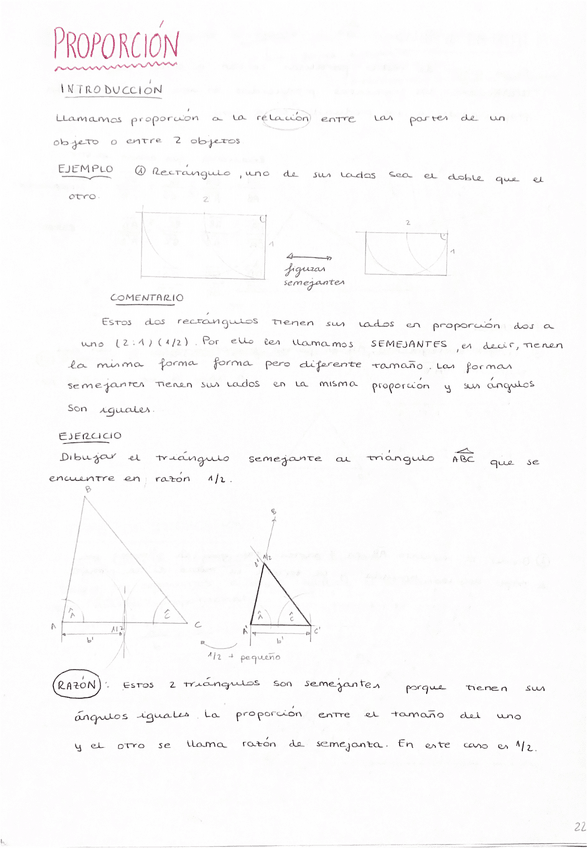 PROPORCIÓN
INTRODUCCIÓN
Llamamos proporción a la relación entre las partes de un
objeto o entre 2 objetos
EJEMPLO ① Rectángulo, uno de sus lados sea el doble que el
otro.
2
1
2
1
figuras
semejantes
COMENTARIO
Estos dos rectángulos tienen sus lados en proporción dos a
uno (2:1) (1/2). Por ello les llamamos SEMEJANTES, es decir, tienen
la misma forma forma pero diferente tamaño. Las formas
semejantes tienen sus lados en la misma proporción y sus ángulos
son iguales.
EJERCICIO
Dibujar el triángulo semejante al triángulo ABC que se
encuentre en razón 1/2.
B
A
C
Â
Ĉ
1/2
b'
B
B'
1/2
Â
Ĉ
A'
C'
b'
1/2 + pequeño
RAZÓN: Estos 2 triángulos son semejantes porque tienen sus
ángulos iguales. La proporción entre el tamaño del uno
y el otro se llama razón de semejanta. En este caso es 1/2.
22